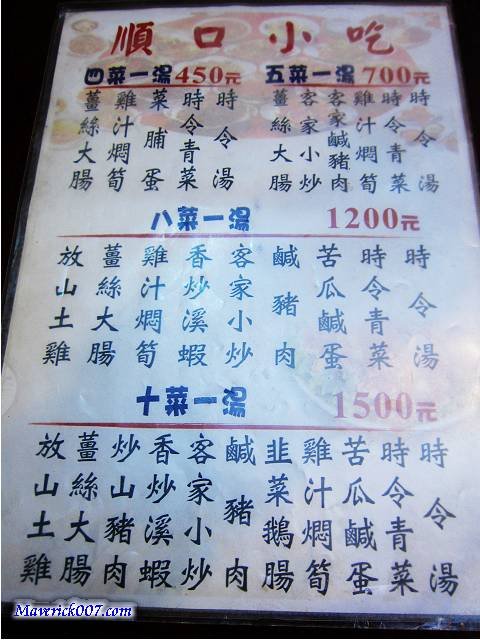 順口小吃
四菜一湯450元
薑絲大腸
雞汁燜筍
菜脯蛋
時令青菜
時令湯
五菜一湯700元
薑絲大腸
客家小炒
客家鹹豬肉
雞汁燜筍
時令青菜
時令湯
八菜一湯 1200元
放山土雞
薑絲大腸
雞汁燜筍
香炒溪蝦
客家小炒
鹹豬肉
苦瓜鹹蛋
時令青菜
時令湯
十菜一湯 1500元
放山土雞
薑絲大腸
炒山豬肉
香炒溪蝦
客家小炒
鹹豬肉
韭菜鵝腸
雞汁燜筍
苦瓜鹹蛋
時令青菜
時令湯
Maverick007.com